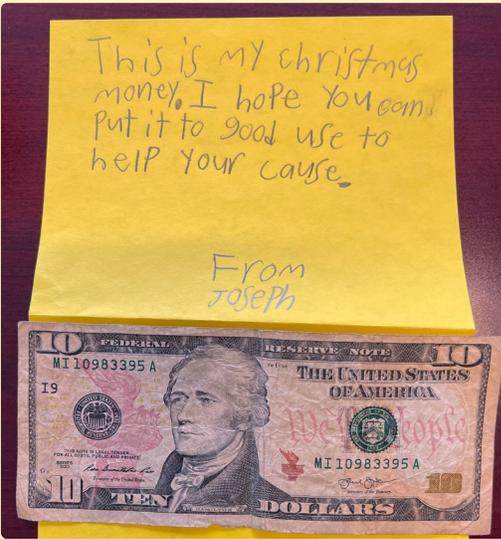 This is my christmas
money. I hope you can
put it to good use to
help your cause.
From
Joseph
10 FEDERAL RESERVE NOTE 10
MI 10983395 A
THE UNITED STATES
OF AMERICA
I9
We the People
THIS NOTE IS LEGAL TENDER
FOR ALL DEBTS, PUBLIC AND PRIVATE
MI 10983395 A
SERIES
10 TEN HAMILTON DOLLARS 10